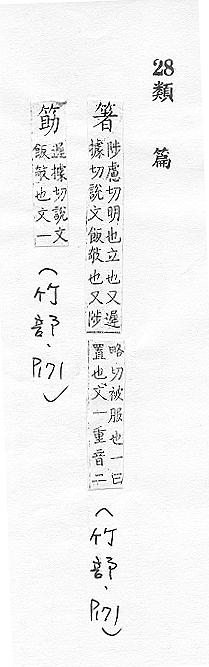 28 類 篇
箸
陟慮切明也立也又遲
據切說文飯攲也又陟
略切被服也一曰
置也文一重音二
(竹部、P171)
筯
遲據切說文
飯攲也文一
(竹部、P171)